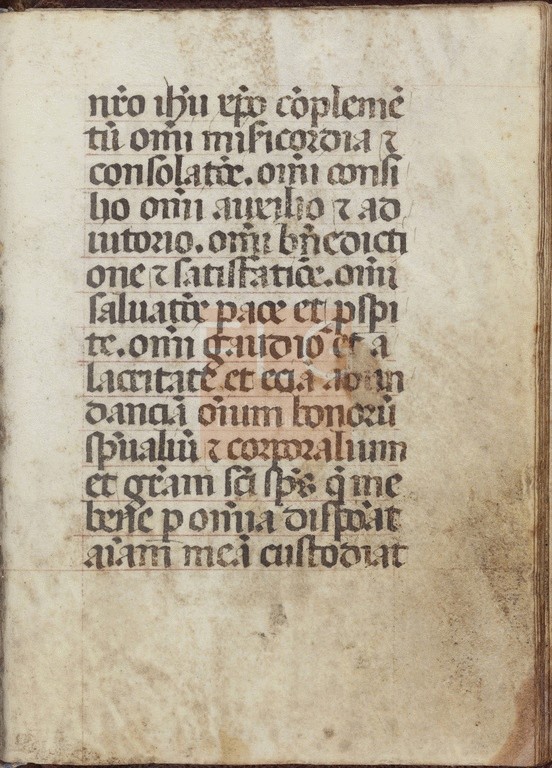 nr̄o ih̄u xp̄o cōplemē
tū om̄i mīsicordia ⁊
consolatōe. om̄i consi
lio om̄i auxilio ⁊ ad
iutorio. om̄i bn̄edicti
one ⁊ satisfatiōe. om̄i
saluatōe pace et ꝓspi
te. om̄i gaudio et a
lacritate et eciā abun
danciā om̄ium bonorū
sp̄ualiū ⁊ corporalium
et gr̄am sc̄i sp̄s q̄ me
bene p om̄ia dispōat
aīam meā custodiat